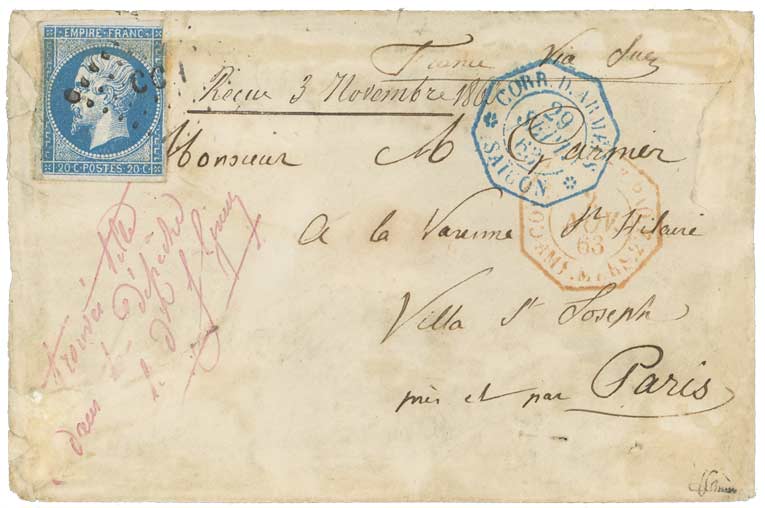 EMPIRE FRANC
20 C POSTES 20 C
CCN
France Via Suez
Reçue 3 Novembre 186
CORR. D. ARMÉES
29
SEPT
63
SAIGON
Monsieur M Garnier
NOV.
63
à la Varenne St Hilaire
Villa St Joseph
près et par Paris
Trouvée
dans la dépêche